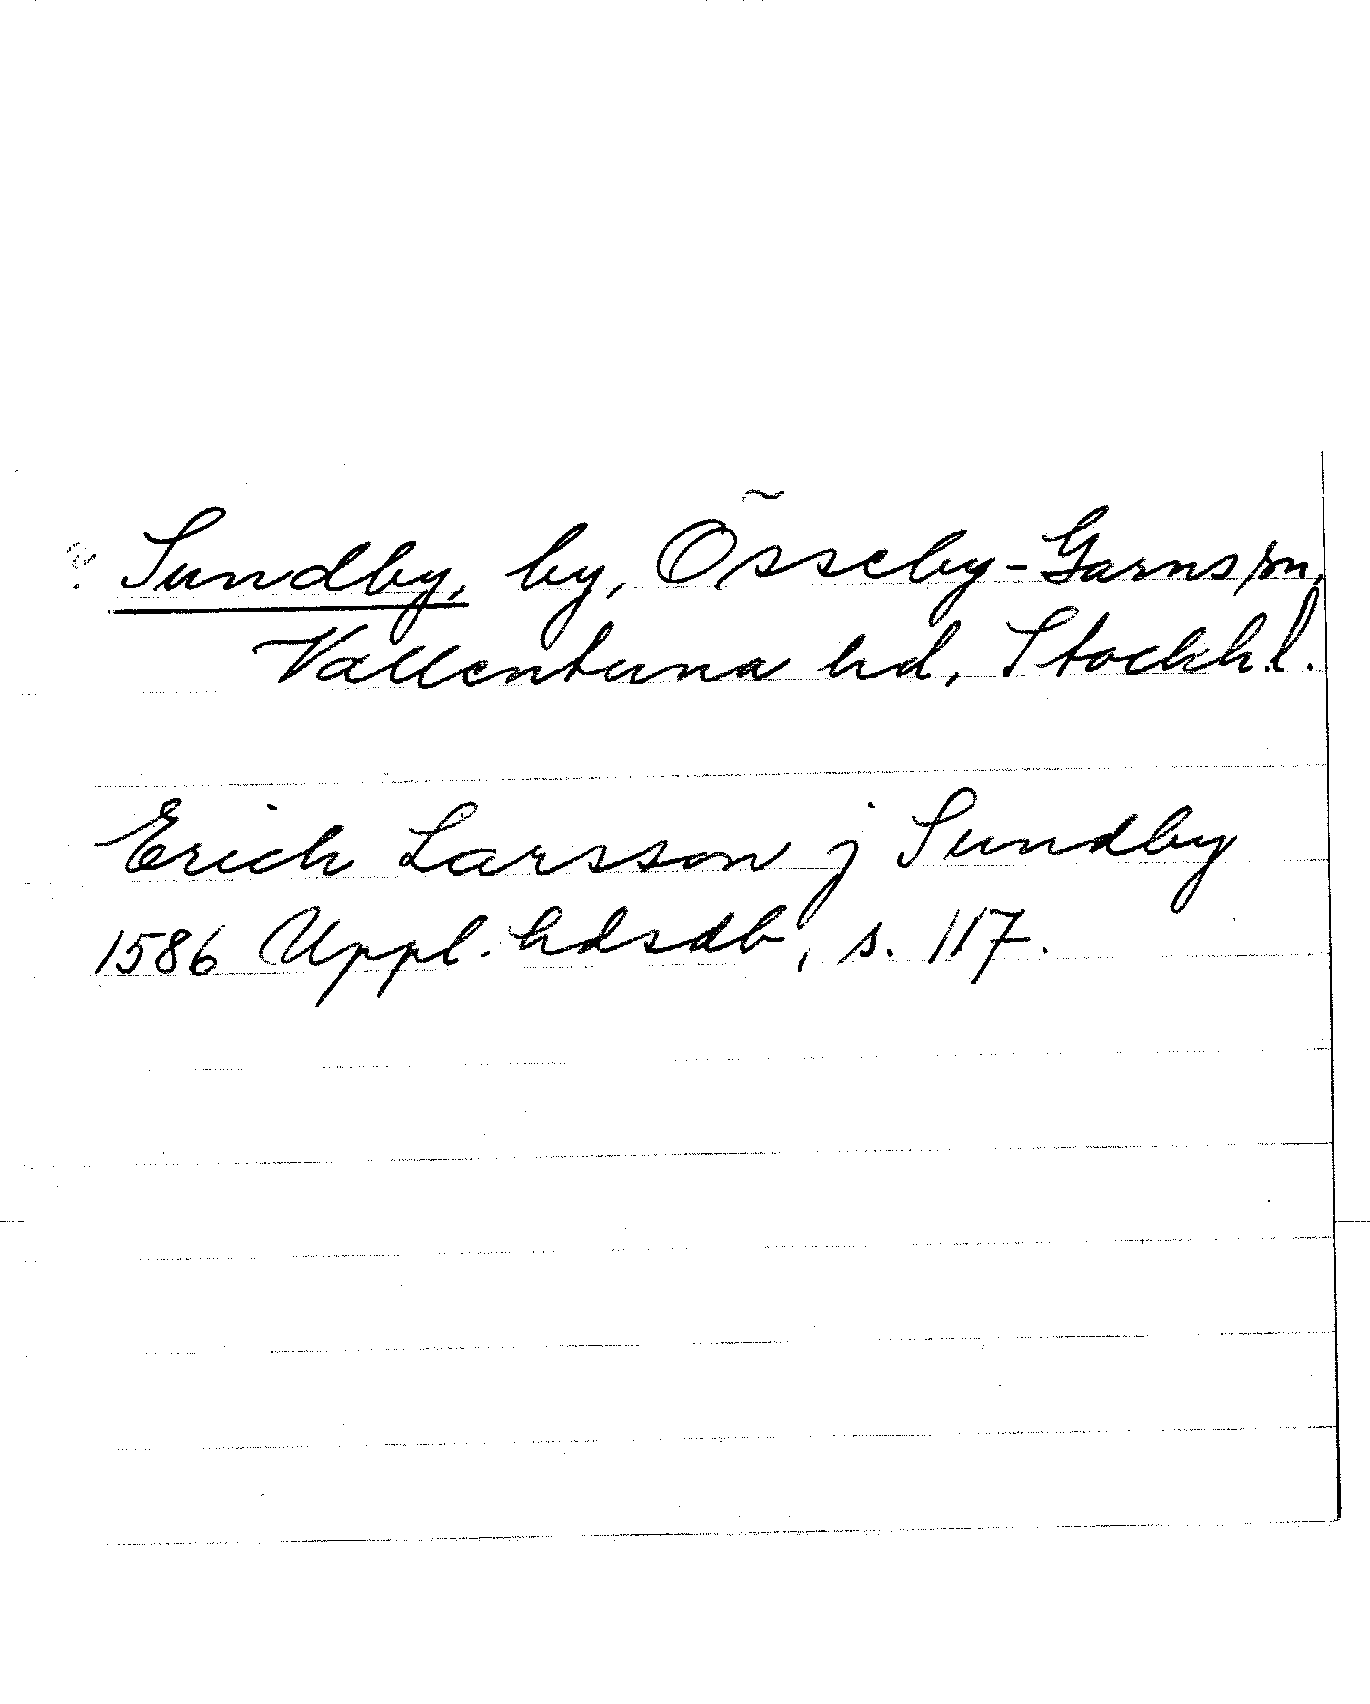 Sundby, by, Össeby-Garns sn,
Vallentuna hd, Stockh. l.
Erich Larsson j Sundby
1586 Uppl. hdsdb, s. 117.